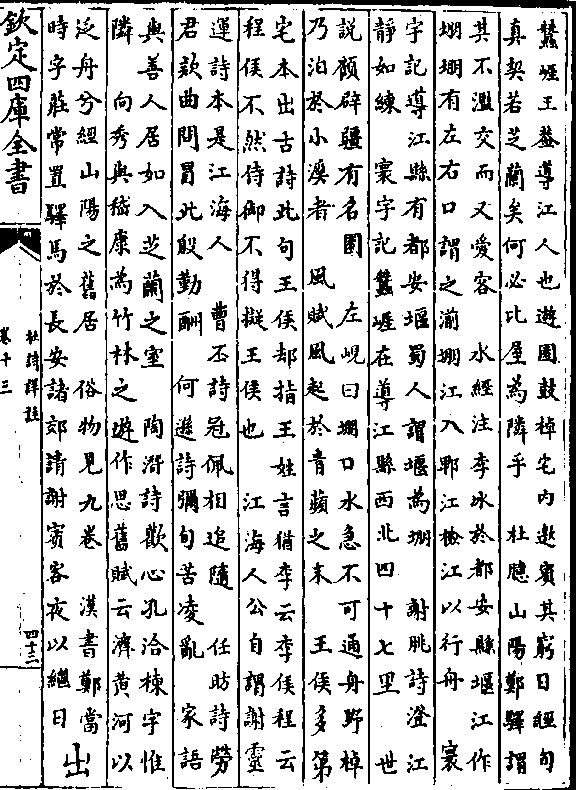 蠶崖王蓋導江人也遊園鼓棹宅内邀賓其窮日經旬
真契若芝蘭矣何必比屋為隣乎　杜臆山陽鄭驛謂
其不濫交而又愛客　水經注李冰於都安縣堰江作
堋堋有左右口謂之湔堋江入郫江檢江以行舟　寰
宇記導江縣有都安堰蜀人謂堰為堋　謝朓詩澄江
靜如練　寰宇記蠶崖在導江縣西北四十七里　世
說顧辟疆有名園　左峴曰堋口水急不可通舟野棹
乃泊於小溪者　風賦風起於青蘋之末　王侯多第
宅本出古詩此句王侯却指王姓言猶李云李侯程云
程侯不然侍御不得擬王侯也　江海人公自謂謝靈
運詩本是江海人　曹丕詩冠佩相追隨　任昉詩勞
君款曲問冒此殷勤酬　何遜詩彌句苦凌亂　家語
與善人居如入芝蘭之室　陶潛詩歡心孔洽棟宇惟
隣　向秀與嵇康為竹林之遊作思舊賦云濟黄河以
泛舟兮經山陽之舊居　俗物見九卷　漢書鄭當
時字莊常置驛馬於長安諸郊請謝賓客夜以繼日　出
欽定四庫全書
杜詩詳註
卷十三
四十二